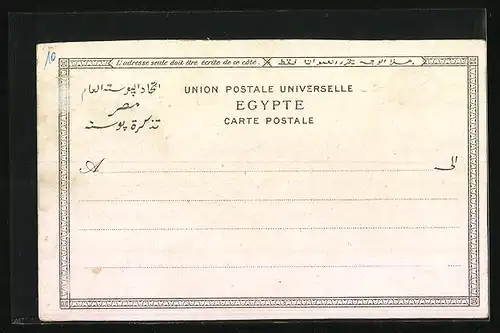 10
L'adresse seule doit être écrite de ce côté.
اتحاد البوستة العام
مصر
تذكرة بوستة
UNION POSTALE UNIVERSELLE
EGYPTE
CARTE POSTALE
A
الى